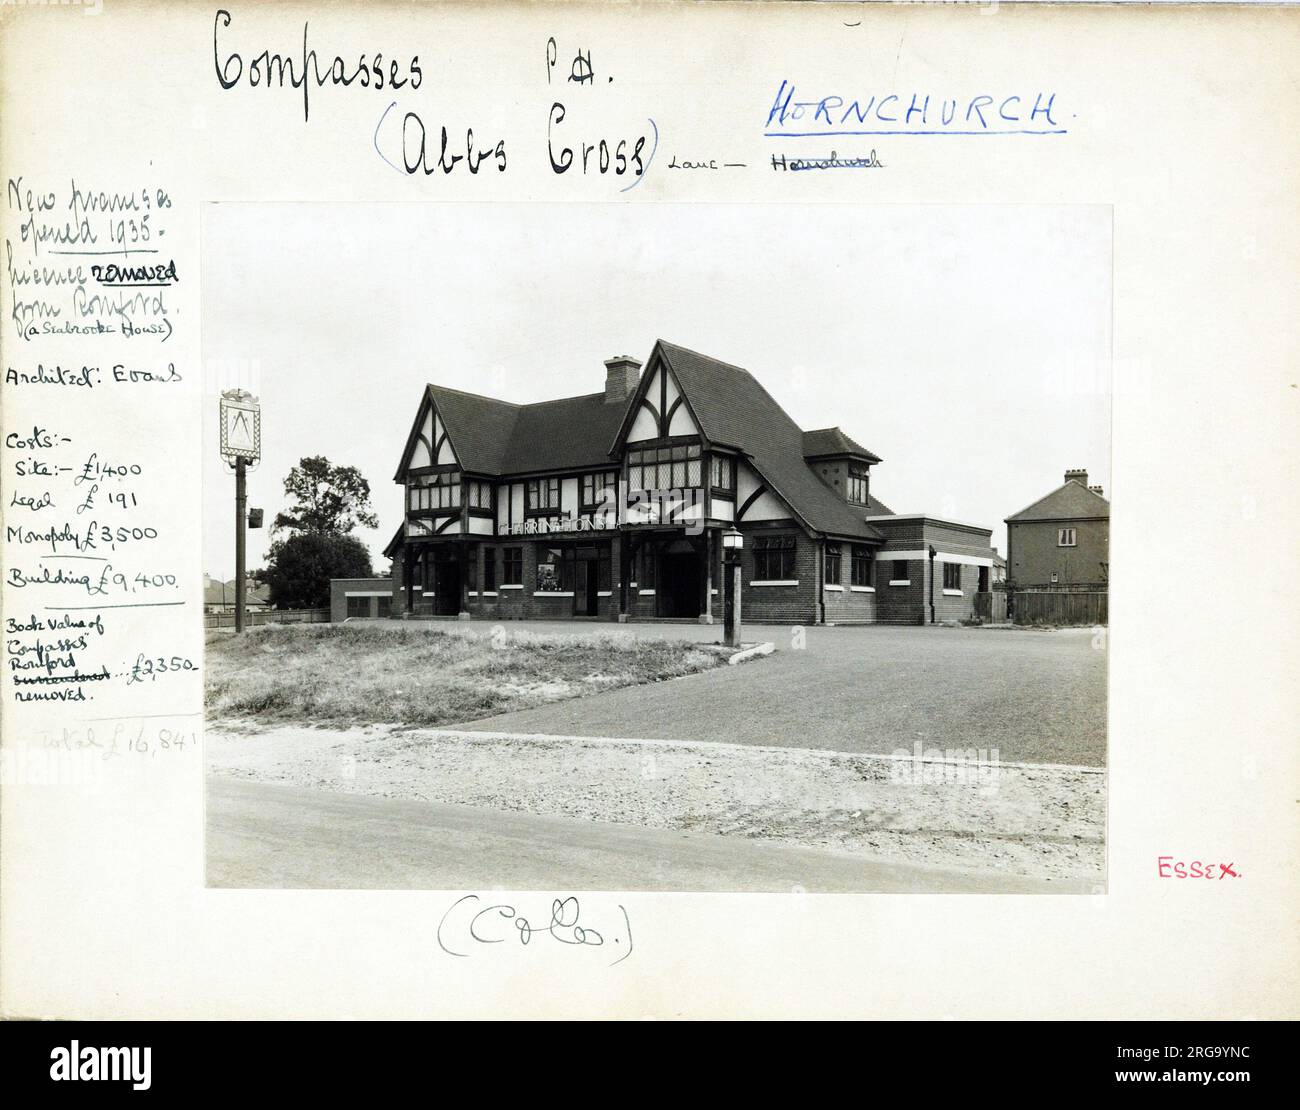 Compasses P.H.
(Abbs Cross) Lane — Hornchurch
HORNCHURCH.
New premises
opened 1935.
Licence removed
from Romford.
(a Seabrooke House)
Architect: Evans
Costs:-
Site:- £1,400
Legal £ 191
Monopoly £3,500
Building £9,400.
Book Value of
"Compasses"
Romford
surrendered ... £2,350-
removed.
Total £16,841
CHARRINGTONS
ESSEX.
alamy
Image ID: RG9YNC
www.alamy.com